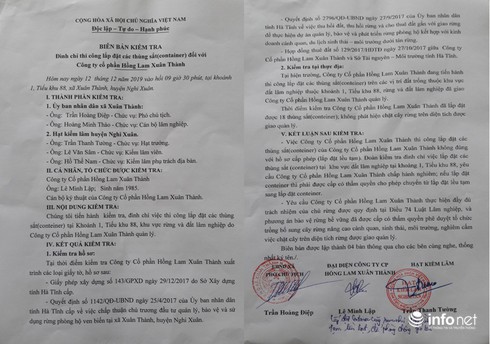 CỘNG HÒA XÃ HỘI CHỦ NGHĨA VIỆT NAM
Độc lập – Tự do – Hạnh phúc
BIÊN BẢN KIỂM TRA
Đình chỉ thi công lắp đặt các thùng sắt(container) đối với
Công ty cổ phần Hồng Lam Xuân Thành
Hôm nay ngày 12 tháng 12 năm 2019 vào hồi 09 giờ 30 phút, tại khoảnh
1, Tiểu khu 88, xã Xuân Thành, huyện Nghi Xuân.
I. THÀNH PHẦN KIỂM TRA:
1. Ủy ban nhân dân xã Xuân Thành:
- Ông: Trần Hoàng Diệp - Chức vụ: Phó chủ tịch.
- Ông: Hoàng Minh Thảo - Chức vụ: Cán bộ lâm nghiệp.
2. Hạt kiểm lâm huyện Nghi Xuân.
- Ông: Trần Thanh Tường - Chức vụ: Hạt trưởng.
- Ông: Lê Văn Sâm - Chức vụ: Kiểm lâm viên.
- Ông: Hồ Thế Nam - Chức vụ: Kiểm lâm phụ trách địa bàn.
II. CÁ NHÂN, TỔ CHỨC ĐƯỢC KIỂM TRA:
Công ty Cổ phần Hồng Lam Xuân Thành
Ông: Lê Minh Lập; Sinh năm 1985.
Cán bộ kỹ thuật của Công ty Cổ phần Hồng Lam Xuân Thành.
III. NỘI DUNG KIỂM TRA:
Chúng tôi tiến hành kiểm tra, đình chỉ việc thi công lắp đặt các thùng
sắt(container) tại Khoảnh 1, Tiểu khu 88, khu vực rừng và đất lâm nghiệp do
Công ty Cổ phần Hồng Lam Xuân Thành quản lý.
IV. KẾT QUẢ KIỂM TRA:
1. Kiểm tra hồ sơ:
Tại thời điểm kiểm tra Công ty Cổ phần Hồng Lam Xuân Thành xuất
trình các loại giấy tờ, hồ sơ sau:
- Giấy phép xây dựng số 143/GPXD ngày 29/12/2017 do Sở Xây dựng
tỉnh Hà Tĩnh cấp.
- Quyết định số 1142/QĐ-UBND ngày 25/4/2017 của Ủy ban nhân dân
tỉnh Hà Tĩnh cấp về việc chấp thuận chủ trương đầu tư quản lý, bảo vệ và sử
dụng rừng phòng hộ ven biển tại xã Xuân Thành, huyện Nghi Xuân.
- Quyết định số 2796/QĐ-UBND ngày 27/9/2017 của Ủy ban nhân dân
tỉnh Hà Tĩnh về việc thu hồi, cho thuê rừng và cho thuê đất gắn với giao rừng
để thực hiện dự án quản lý, bảo vệ và phát triển rừng phòng hộ kết hợp với kinh
doanh cảnh quan, du lịch sinh thái - môi trường dưới tán rừng.
- Hợp đồng thuê đất số 129/2017/HĐTĐ ngày 27/10/2017 giữa Công ty
Cổ phần Hồng Lam Xuân Thành và Sở Tài nguyên – Môi trường tỉnh Hà Tĩnh.
2. Kiểm tra tại thực địa:
Tại hiện trường, Công ty Cổ phần Hồng Lam Xuân Thành đang tiến hành
thi công lắp đặt các thùng sắt(container) trên các vị trí đất trống thuộc khu vực
đất lâm nghiệp thuộc khoảnh 1, Tiểu khu 88, rừng và đất lâm nghiệp đã giao
Công ty Cổ phần Hồng Lam Xuân Thành quản lý.
Thời điểm kiểm tra Công ty Cổ phần Hồng Lam Xuân Thành đã lắp đặt
được 18 thùng sắt(container), không phát hiện chặt cây rừng trên diện tích được
giao quản lý.
V. KẾT LUẬN SAU KIỂM TRA:
- Việc Công ty Cổ phần Hồng Lam Xuân Thành thi công lắp đặt các
thùng sắt(container) tại khu vực đất lâm nghiệp tại khoảnh 1, Tiểu khu 88, yêu
cầu Công ty Cổ phần Hồng Lam Xuân Thành chấp hành nghiêm, nếu lắp đặt
- Yêu cầu Công ty Cổ phần Hồng Lam Xuân Thành thực hiện đầy đủ
trách nhiệm của chủ rừng được quy định tại Điều 74 Luật Lâm nghiệp, và
Biên bản được lập thành 04 bản thông qua cho các bên cùng nghe, thống
nhất ký tên./.
ĐẠI DIỆN CÔNG TY CP
HỒNG LAM XUÂN THÀNH
PHÓ CHỦ TỊCH
HẠT KIỂM LÂM
HẠT TRƯỞNG
Trần Hoàng Diệp
Lê Minh Lập
Trần Thanh Tường
infonet